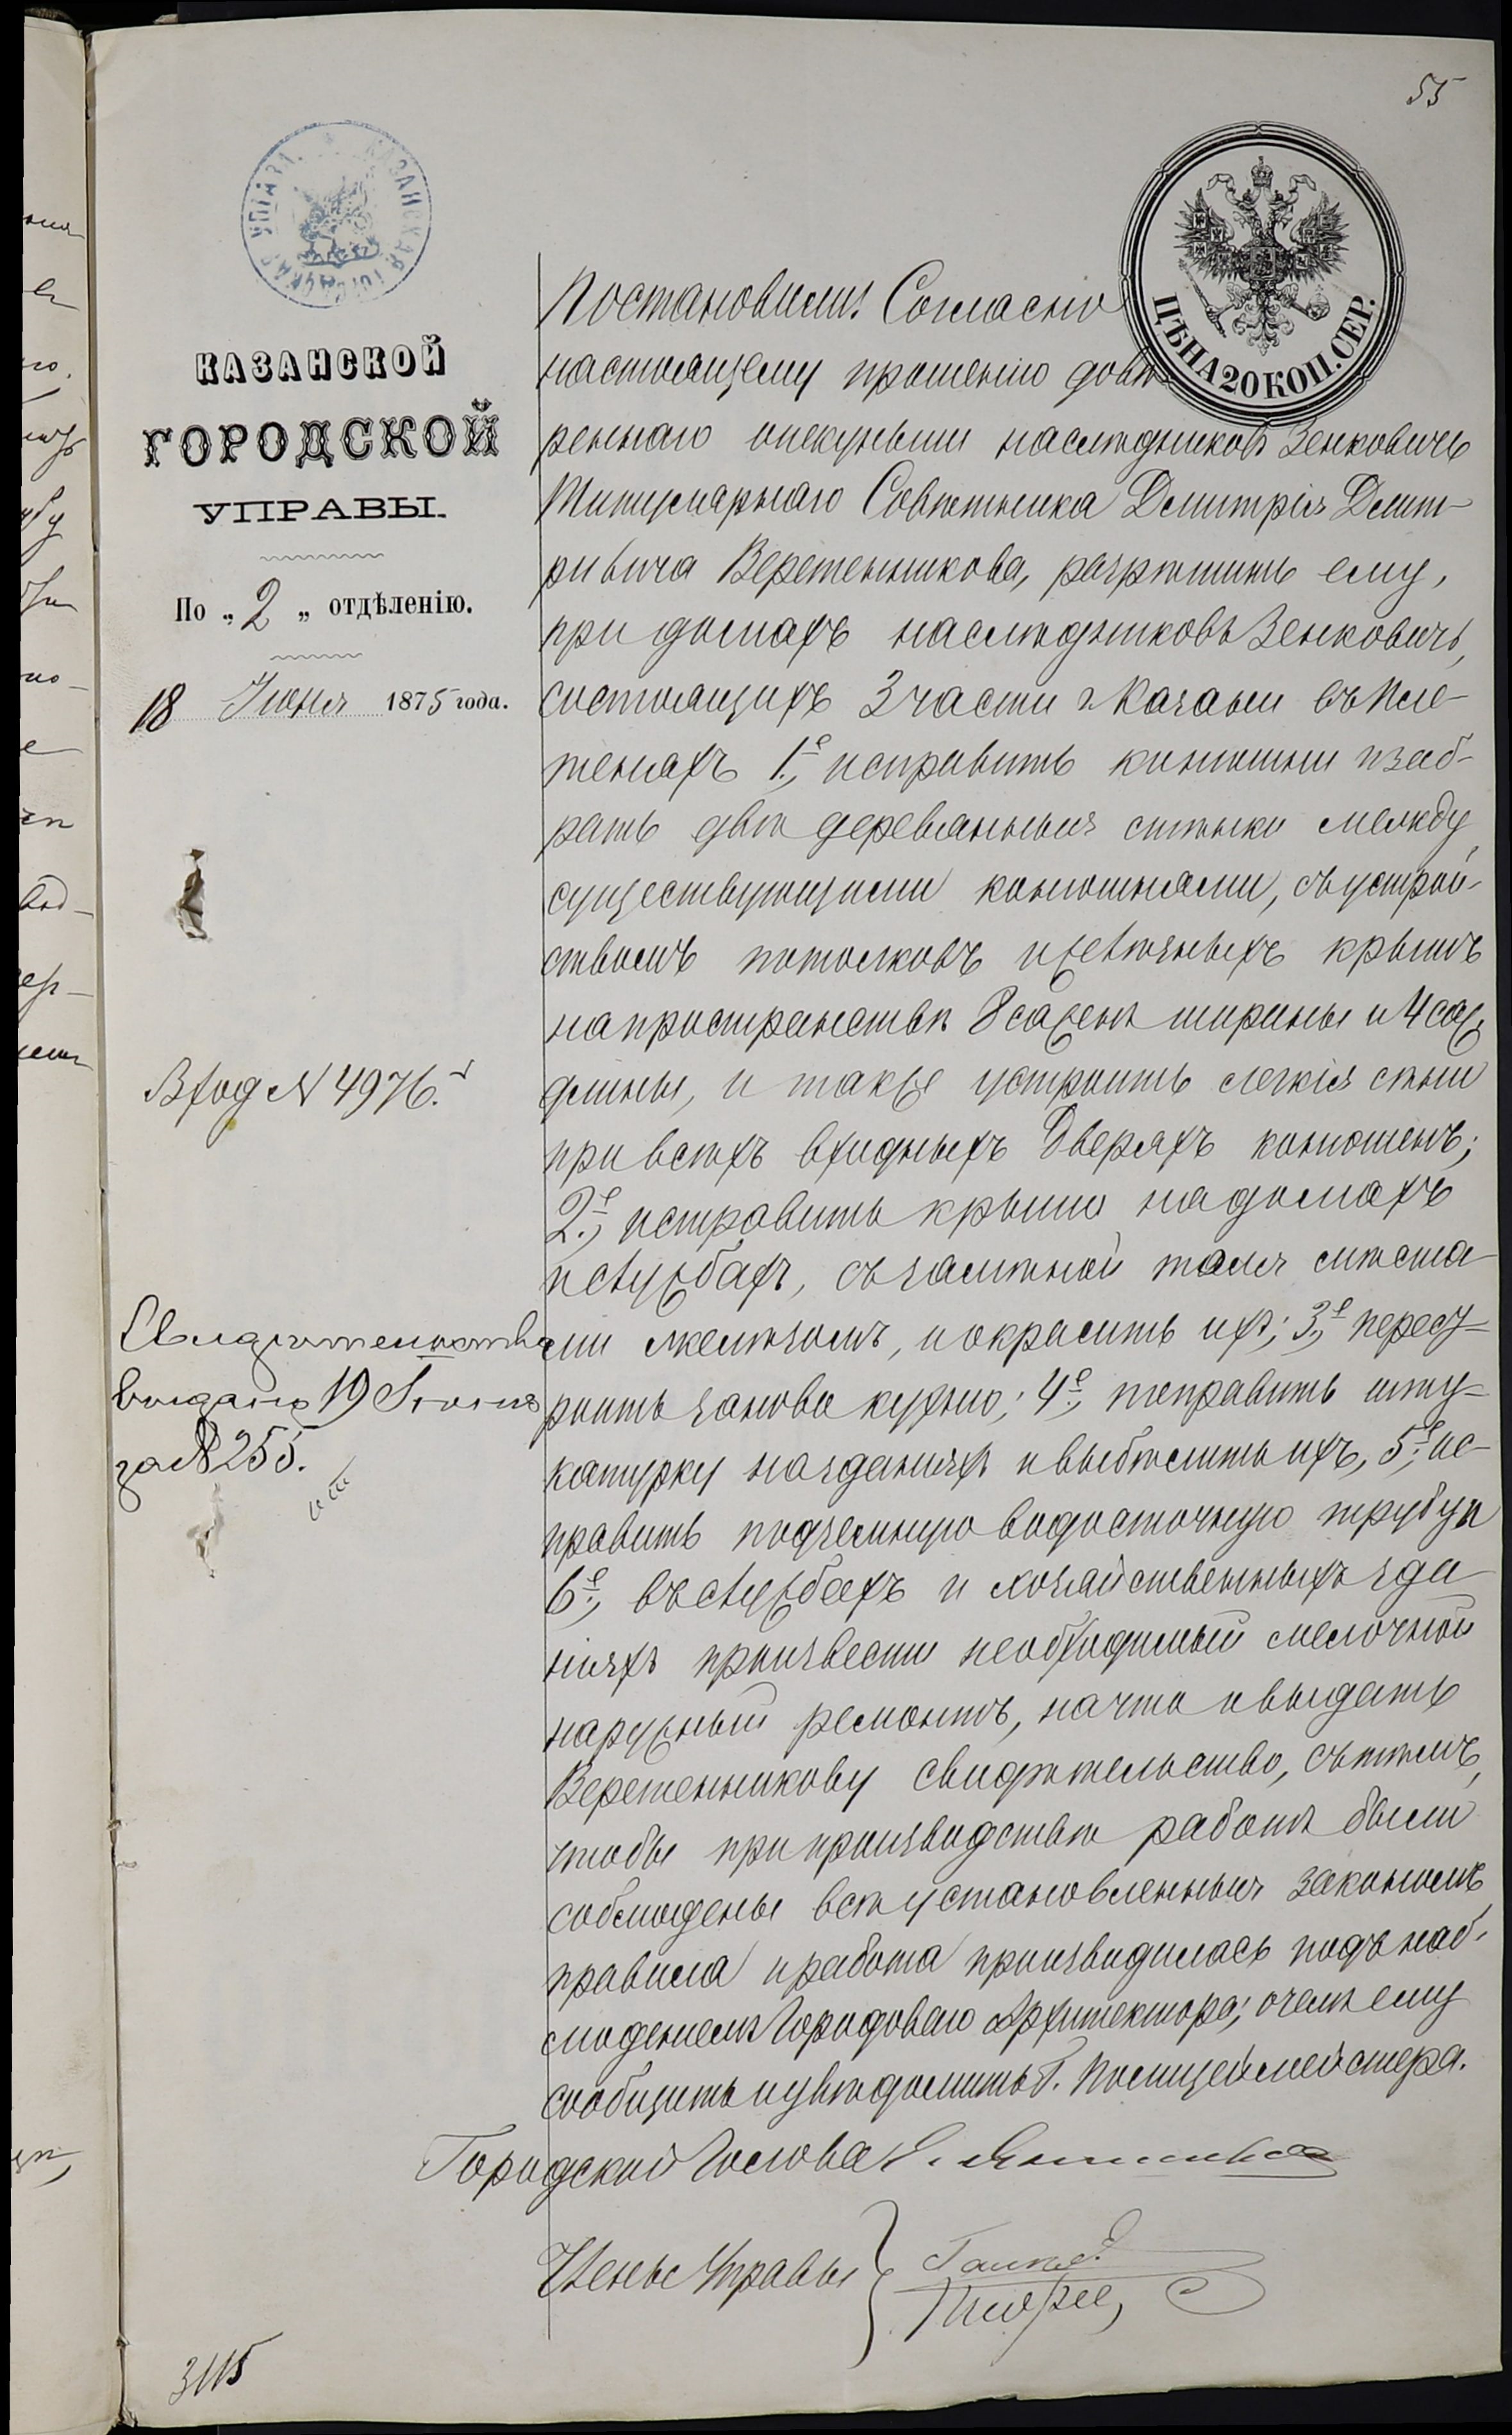 55
КАЗАНСКАЯ ГОРОДСКАЯ УПРАВА
ЦѢНА 20 КОП. СЕР.
КАЗАНСКОЙ
ГОРОДСКОЙ
УПРАВЫ.
По „ 2 „ отдѣленію.
18 Іюня 1875 года.
Вход № 4976.
Свидѣтельство
выдано 19 Іюня
за № 255.
Постановили: Согласно
настоящему прошенію довѣ
реннаго опекунши наслѣдниковъ Зенковичъ
Титулярнаго Совѣтника Дмитрія Дмит-
ривича Веретенникова, разрѣшить ему,
при домахъ наслѣдниковъ Зенковичъ,
состоящихъ 3 части г. Казани въ Пле-
теняхъ 1.е, исправить конюшни и заб-
рать двѣ деревянныя стѣнки между
существующими конюшнями, съ устрой-
ствомъ потолковъ и желѣзныхъ крышъ
на пространствѣ 8 сажен ширины и 4 саж.
длины, и также устроить легкія сѣни
при всѣхъ входныхъ дверяхъ конюшенъ;
2.е, исправить крыши на домахъ
и службахъ, съ замѣной толя мѣста
ми желѣзомъ, и окрасить их; 3.е, перест-
роить заново кухню; 4.е, исправить шту-
катурку на зданіяхъ и выбѣлить ихъ, 5.е, ис-
править подземную водосточную трубу и
6.е, въ службахъ и хозяйственныхъ зда
ніяхъ произвести необходимый мелочной
наружный ремонтъ, на что и выдать
Веретенникову свидѣтельство, съ тѣмъ,
чтобы при производствѣ работъ были
соблюдены всѣ установленныя закономъ
правила и работа производилась подъ наб-
люденіемъ Городоваго Архитектора; о чемъ ему
сообщить и увѣдомить Г. Полицеймейстера.
Городской Голова
Члены Управы
3115